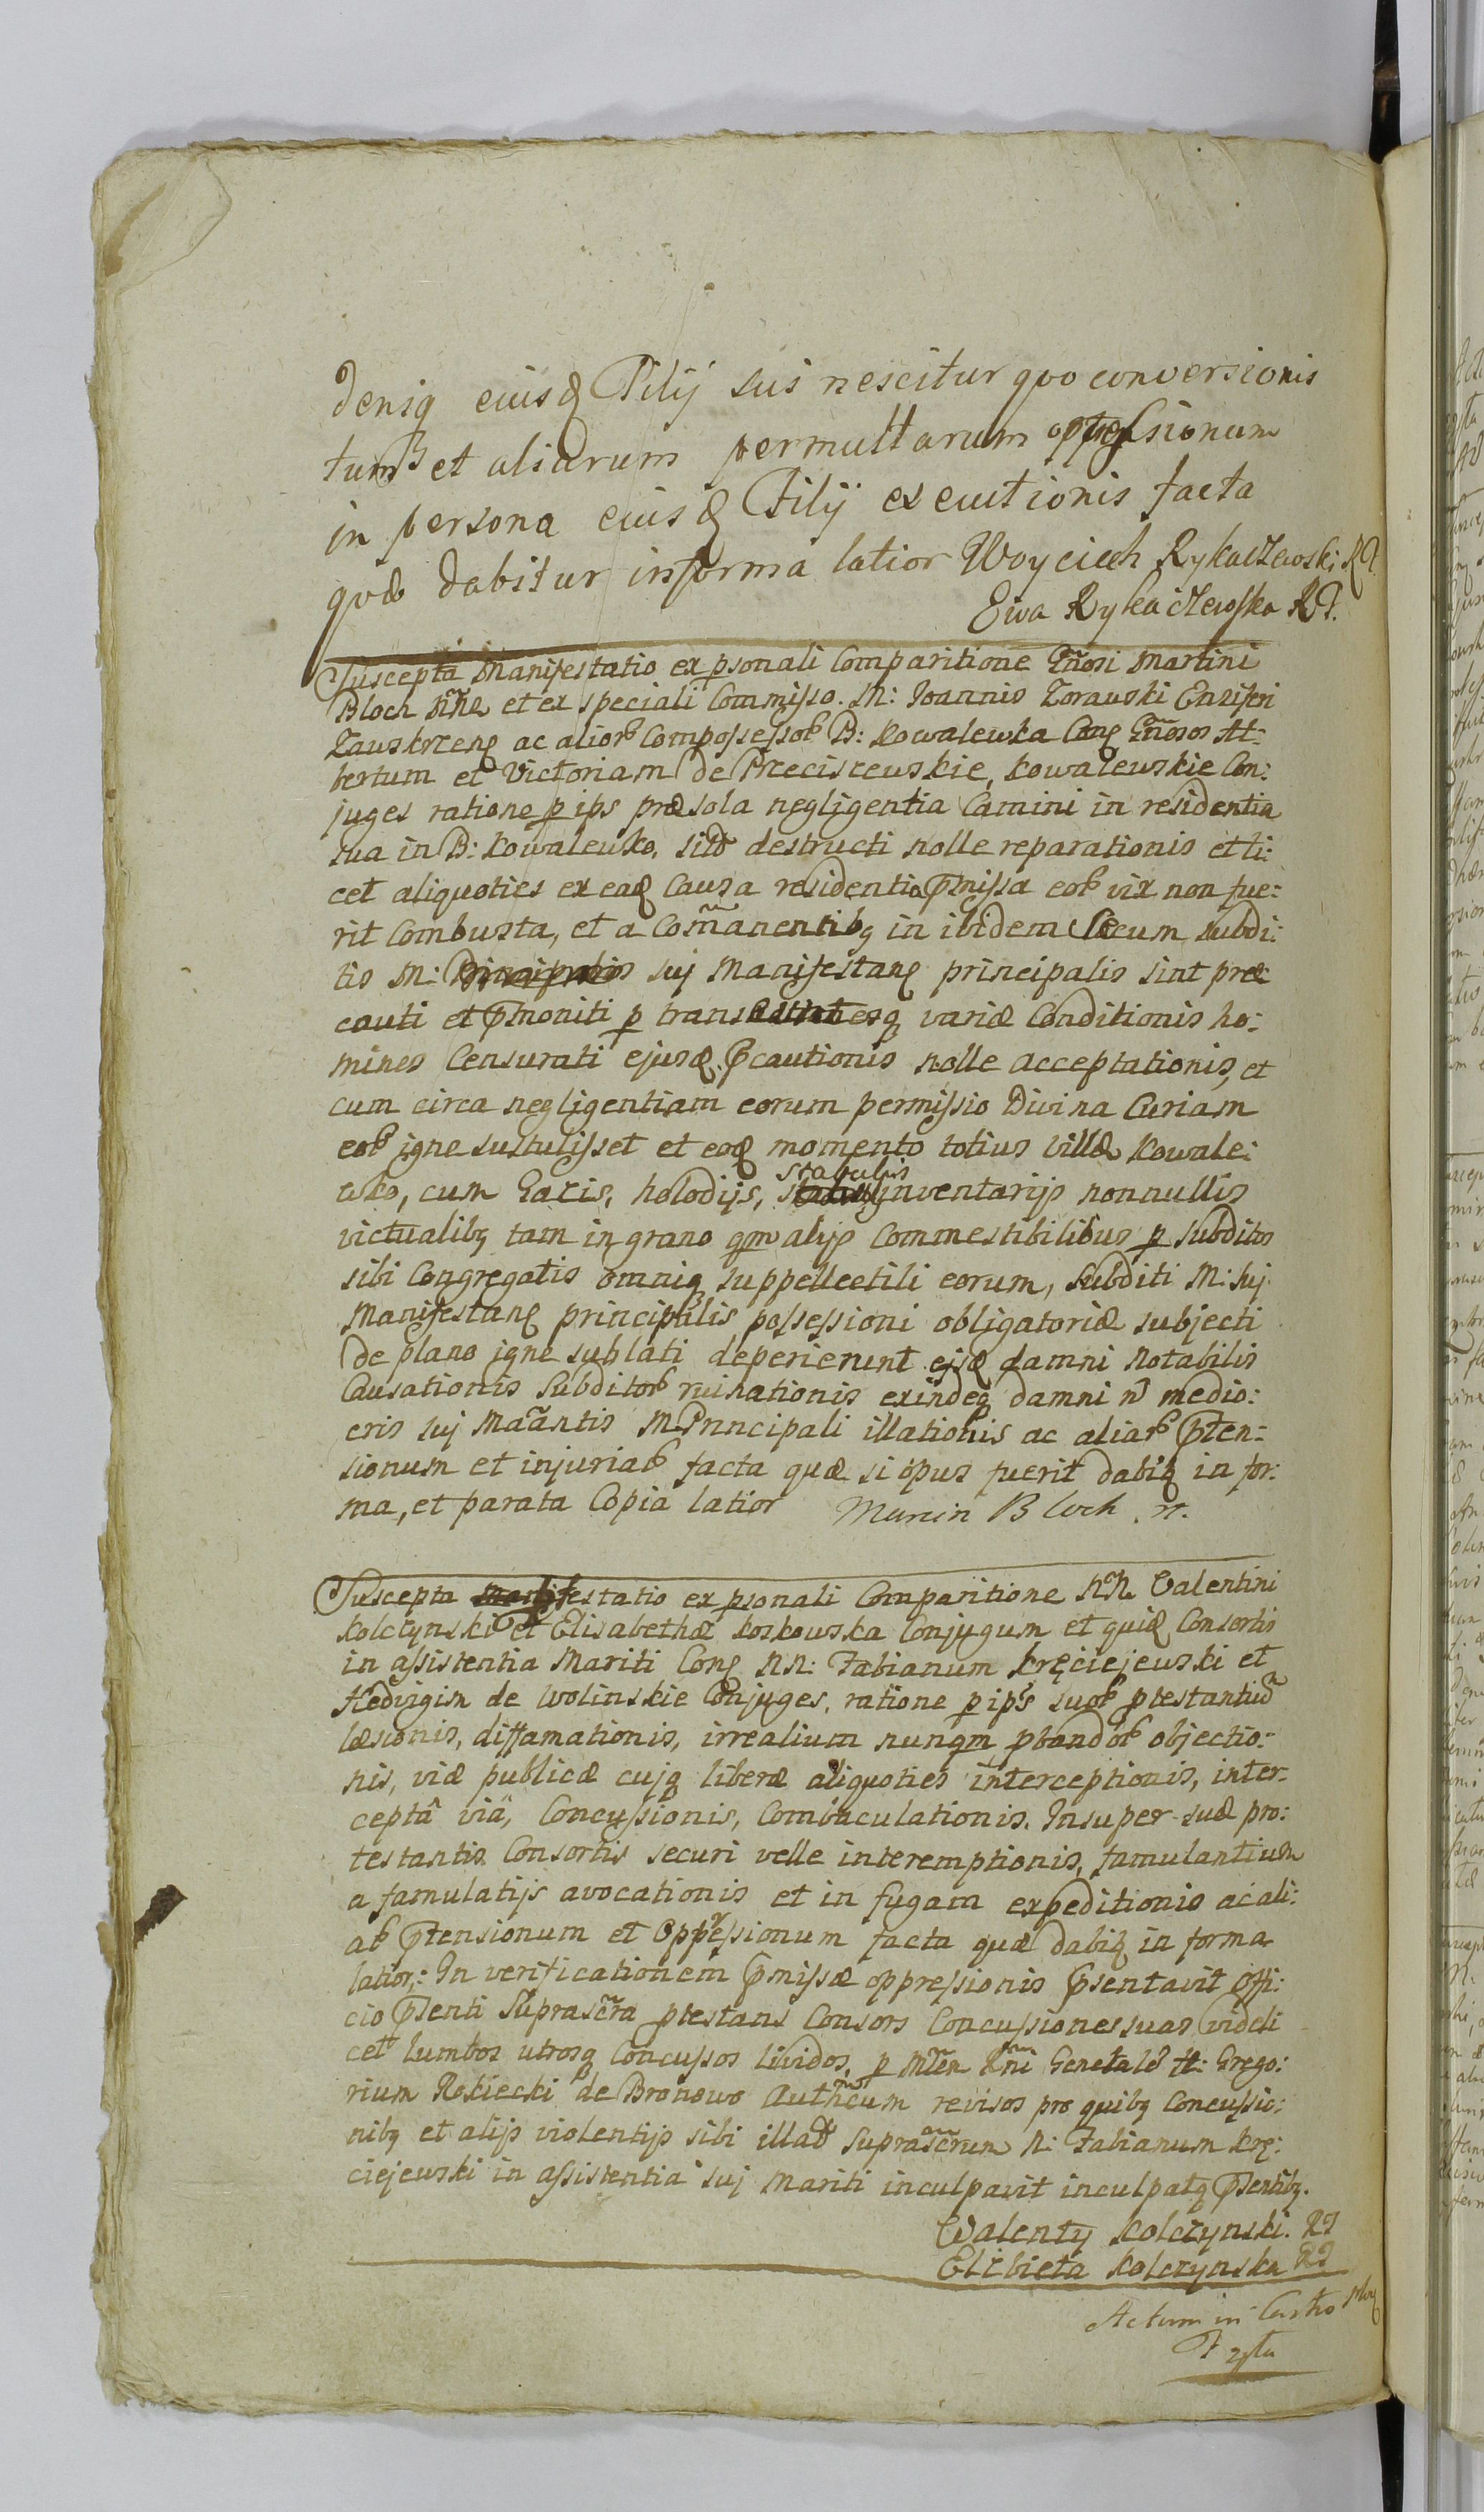 deniq eiusq Filij sui nescitur quo conversionis
tum et aliarum permultarum oppressionum
in persona eiusq Filij executionis facta
quæ dabitur in forma latior Woyciech Rykaczewski
Ewa Rykaczewska
Suscepta Manifestatio ex psonali Comparitione Gñosi Martini
Bloch et ex speciali Commisso. M: Joannis Zorawski Ensiferi
Zauskrzeng ac alior Compossessor B: Kowalewka Cong Gñosos At:
bertum et Victoriam de Przeciszewskie, Kowalewskie Con:
juges ratione p ips præ sola negligentia Camini in residentia
sua in B: Kowalewko, sito destructi nolle reparationis et li:
cet aliquoties ex eaq Causa residentia pmissa eor vix non fue:
rit Combusta, et a Comanentibq in ibidem secum subdi:
tis M: sui Manifestang principalis sint præ
cauti et pmoniti p transeuntesq variæ Conditionis ho:
mines Censurati ejusq pcautionis nolle acceptationis, et
cum circa negligentiam eorum permissio Divina Curiam
eor igne sustulisset et eoq momento totius villæ Kowale:
wko, cum Gacis, holodijs, stabulis inventarijs nonnullis
victualibq tam in grano qm alijs Commestibilibus p subditos
sibi Congregatis omniq suppellectili eorum, subditi M: suj
Manifestang principalis possessioni obligatoriæ subjecti
de plano igne sublati deperierunt ejsq damni notabilis
Causationis Subditor ruinationis exindeq damni ñ medio:
cris suj Mañantis M. Principali illationis ac aliar pten:
sionum et injuriar facta quæ si opus fuerit dabitq in for:
ma, et parata Copia latior Marcin Bloch
Suscepta Manifestatio ex psonali Comparitione NN. Valentini
Kolczynski et Elisabethæ Koskowska Conjugum et quiq Consortis
in assistentia Mariti Cong NN: Fabianum Kręciejewski et
Hedvigim de Wolinskie Conjuges, ratione p ips suor ptestantiu
læsionis, diffamationis, irrealium nunqm pbandor objectio:
nis, viæ publicæ cujq liberæ aliquoties interceptionis, inter:
ceptâ viâ, Concussionis, Combaculationis. Insuper suæ pro:
testantis Consortis securi velle interemptionis, famulantium
a famulatijs avocationis et in fugam expeditionis ac ali:
ar ptensionum et Oppressionum facta quæ dabitq in forma
latior: In verificationem pmissæ oppressionis psentavit Offi:
cio psenti Suprascra ptestans Consors Concussiones suas videli
cet lumbos utrosq Concussos lividos, p Mtem Rni Generalē H: Grego:
rium Rokiecki de Bronowo Authcum revisos pro quibq Concussio:
nibq et alijs violentijs sibi illat suprascrum N: Fabianum Krę:
ciejewski in assistentia suj Mariti inculpavit inculpatq psentibq.
Walenty Kolczynski.
Elżbieta Kolczynska
Actum in Castro